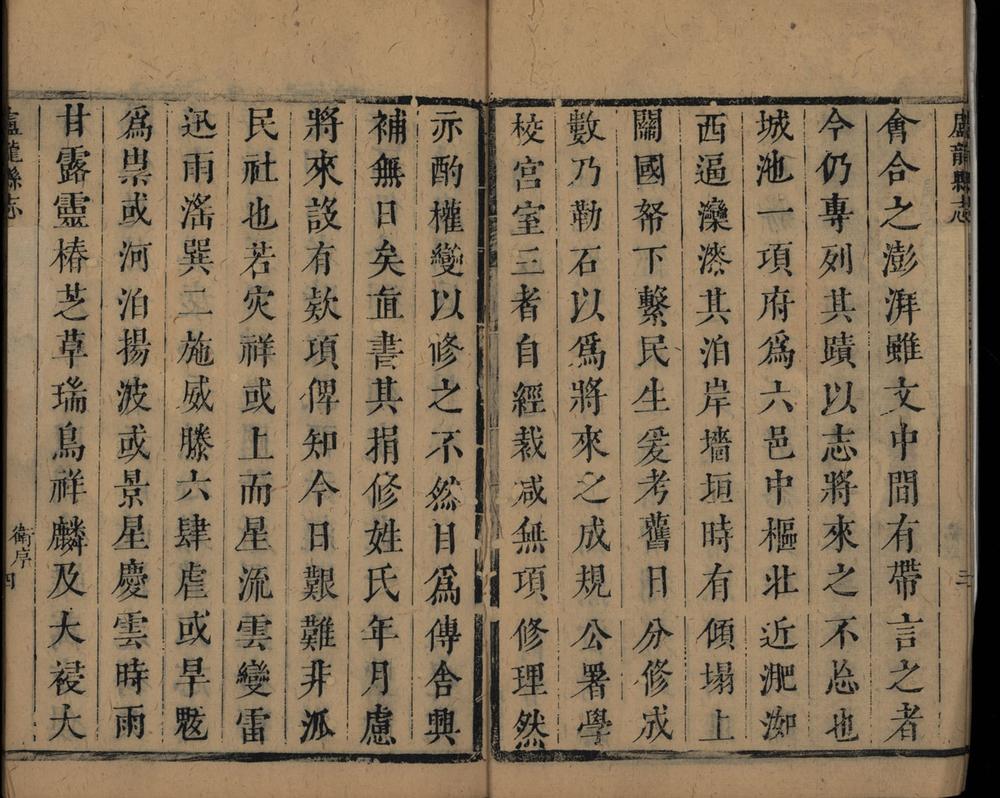 盧龍縣志
三
會合之澎湃雖文中間有帶言之者
今仍專列其蹟以志將來之不忘也
城池一項府爲六邑中樞壯近淝洳
西逼灤漆其泊岸墻垣時有傾塌上
關國帑下繫民生爰考舊日分修成
數乃勒石以爲將來之成規公署學
校宫室三者自經裁减無項修理然
亦酌權變以修之不然目爲傳舍興
補無日矣直書其捐修姓氏年月慮
將來設有欵項俾知今日艱難非泒
民社也若灾祥或上而星流雲變雷
迅雨滛巽二施威滕六肆虐或旱魃
爲祟或河泊揚波或景星慶雲時雨
甘露靈椿芝草瑞鳥祥麟及大祲大
盧龍縣志
衛序
四